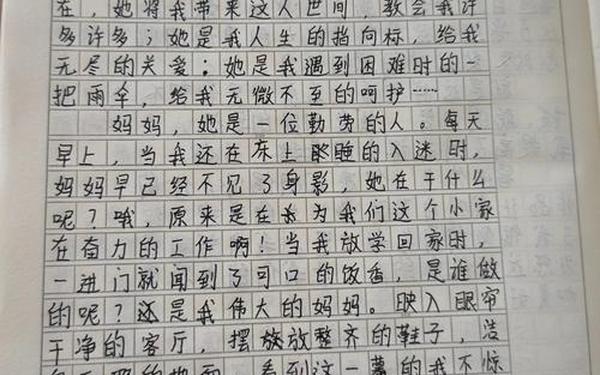 在，她将我带来这人世间，教会我许
多许多；她是我人生的指向标，给我
无尽的关爱；她是我遇到困难时的一
把雨伞，给我无微不至的呵护……
妈妈，她是一位勤劳的人。每天
早上，当我还在床上睡的入迷时，
妈妈早已经不见了身影，她在干什么
呢？哦，原来是在为我们这个小家
在奋力的工作啊！当我放学回家时，
一进门就闻到了可口的饭香，是谁做
的呢？还是我伟大的妈妈。映入眼帘
干净的客厅，摆放整齐的鞋子，洁
看到这一幕的我不惊